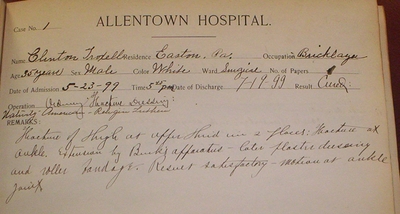 ALLENTOWN HOSPITAL.
Case No. 1
Name, Clinton Trodell Residence Easton, Pa. Occupation Bricklayer
Age 35 years Sex Male Color White Ward Surgical No. of Papers
Date of Admission 5-23-99 Time 5 45 pm Date of Discharge 7-14-99 Result Cured
Operation Fracture Dressing
Nativity American - Religion Lutheran
REMARKS:
Fracture of thigh at upper third in 2 places: Fracture at
ankle. Extension by Bucks apparatus - later plaster dressing
and roller bandage. Result satisfactory - motion at ankle
joint